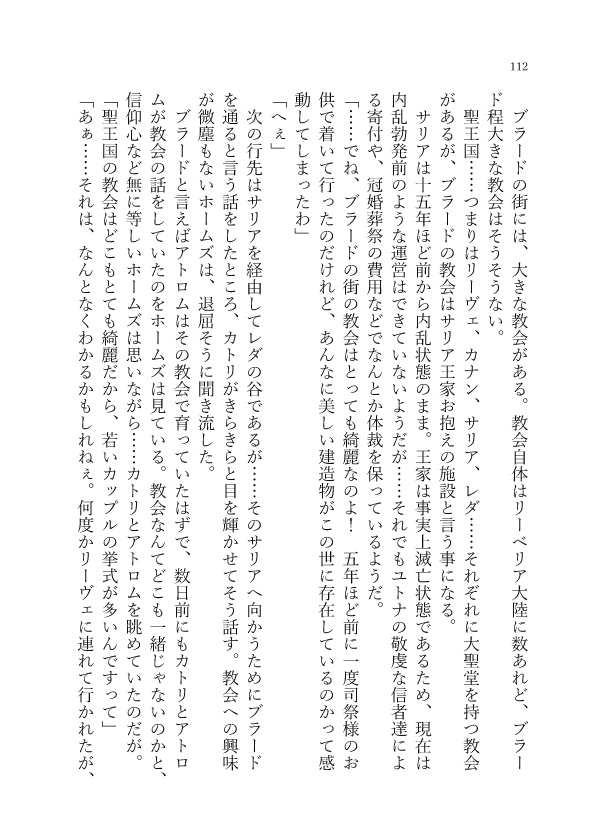 112
　ブラードの街には、大きな教会がある。教会自体はリーベリア大陸に数あれど、ブラー
ド程大きな教会はそうそうない。
　聖王国……つまりはリーヴェ、カナン、サリア、レダ……それぞれに大聖堂を持つ教会
があるが、ブラードの教会はサリア王家お抱えの施設と言う事になる。
　サリアは十五年ほど前から内乱状態のまま。王家は事実上滅亡状態であるため、現在は
内乱勃発前のような運営はできていないようだが……それでもユトナの敬虔な信者達によ
る寄付や、冠婚葬祭の費用などでなんとか体裁を保っているようだ。
「……でね、ブラードの街の教会はとっても綺麗なのよ！　五年ほど前に一度司祭様のお
供で着いて行ったのだけれど、あんなに美しい建造物がこの世に存在しているのかって感
動してしまったわ」
「へぇ」
　次の行先はサリアを経由してレダの谷であるが……そのサリアへ向かうためにブラード
を通ると言う話をしたところ、カトリがきらきらと目を輝かせてそう話す。教会への興味
が微塵もないホームズは、退屈そうに聞き流した。
　ブラードと言えばアトロムはその教会で育っていたはずで、数日前にもカトリとアトロ
ムが教会の話をしていたのをホームズは見ている。教会なんてどこも一緒じゃないのかと、
信仰心など無に等しいホームズは思いながら……カトリとアトロムを眺めていたのだが。
「聖王国の教会はどこもとても綺麗だから、若いカップルの挙式が多いんですって」
「あぁ……それは、なんとなくわかるかもしれねぇ。何度かリーヴェに連れて行かれたが、